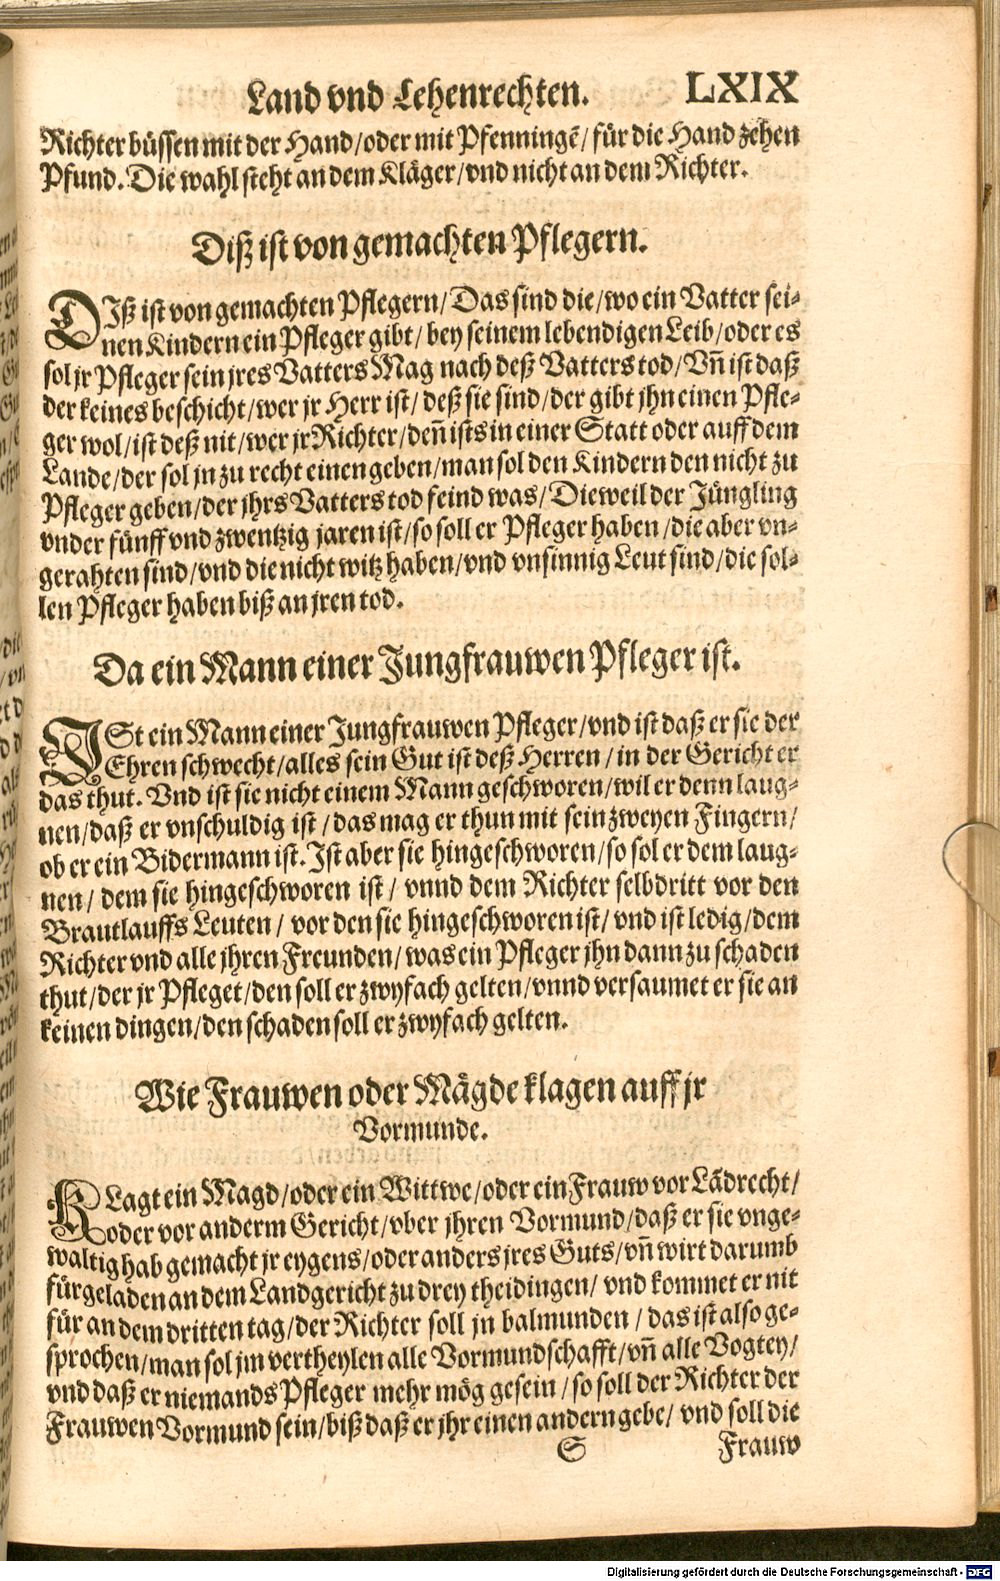 Land vnd Lehenrechten. LXIX
Richter büssen mit der Hand/oder mit Pfenningẽ/für die Hand zehen
Pfund. Die wahl steht an dem Kläger/vnd nicht an dem Richter.
Diß ist von gemachten Pflegern.
DIß ist von gemachten Pflegern/Das sind die/wo ein Vatter sei-
nen Kindern ein Pfleger gibt/bey seinem lebendigen Leib/oder es
sol jr Pfleger sein jres Vatters Mag nach deß Vatters tod/Vñ ist daß
der keines beschicht/wer jr Herr ist/deß sie sind/der gibt jhn einen Pfle-
ger wol/ist deß nit/wer jr Richter/deñ ists in einer Statt oder auff dem
Lande/der sol jn zu recht einen geben/man sol den Kindern den nicht zu
Pfleger geben/der jhrs Vatters tod feind was/Dieweil der Jüngling
vnder fünff vnd zwentzig jaren ist/so soll er Pfleger haben/die aber vn-
gerahten sind/vnd die nicht witz haben/vnd vnsinnig Leut sind/die sol-
len Pfleger haben biß an jren tod.
Da ein Mann einer Jungfrauwen Pfleger ist.
ISt ein Mann einer Jungfrauwen Pfleger/vnd ist daß er sie der
Ehren schwecht/alles sein Gut ist deß Herren/in der Gericht er
das thut. Vnd ist sie nicht einem Mann geschworen/wil er denn laug-
nen/daß er vnschuldig ist/das mag er thun mit sein zweyen Fingern/
ob er ein Bidermann ist. Ist aber sie hingeschworen/so sol er dem laug-
nen/dem sie hingeschworen ist/vnnd dem Richter selbdritt vor den
Brautlauffs Leuten/vor den sie hingeschworen ist/vnd ist ledig/dem
Richter vnd alle jhren Freunden/was ein Pfleger jhn dann zu schaden
thut/der jr Pfleget/den soll er zwyfach gelten/vnnd versaumet er sie an
keinen dingen/den schaden soll er zwyfach gelten.
Wie Frauwen oder Mägde klagen auff jr
Vormunde.
KLagt ein Magd/oder ein Wittwe/oder ein Frauw vor Lãdrecht/
oder vor anderm Gericht/vber jhren Vormund/daß er sie vnge-
waltig hab gemacht jr eygens/oder anders jres Guts/vñ wirt darumb
fürgeladen an dem Landgericht zu drey theidingen/vnd kommet er nit
für an dem dritten tag/der Richter soll jn balmunden/das ist also ge-
sprochen/man sol jm vertheylen alle Vormundschafft/vñ alle Vogtey/
vnd daß er niemands Pfleger mehr mög gesein/so soll der Richter der
Frauwen Vormund sein/biß daß er jhr einen andern gebe/vnd soll die
S Frauw
Digitalisierung gefördert durch die Deutsche Forschungsgemeinschaft - DFG